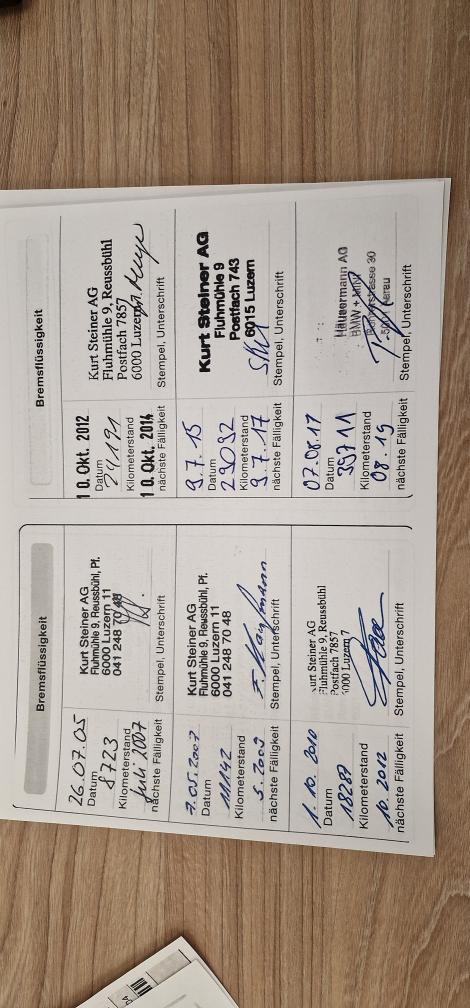 Bremsflüssigkeit
26.07.05
Datum
8723
Kilometerstand
Juli 2007
nächste Fälligkeit
Kurt Steiner AG
Fluhmühle 9, Reussbühl, Pf.
6000 Luzern 11
041 248 70 48
Stempel, Unterschrift
7.05.2007
Datum
11142
Kilometerstand
5.2009
nächste Fälligkeit
Kurt Steiner AG
Fluhmühle 9, Reussbühl, Pf.
6000 Luzern 11
041 248 70 48
F. Kaufmann
Stempel, Unterschrift
1.10.2010
Datum
18287
Kilometerstand
10.2012
nächste Fälligkeit
Kurt Steiner AG
Fluhmühle 9, Reussbühl
Postfach 7857
6000 Luzern 7
Stempel, Unterschrift
Bremsflüssigkeit
10. Okt. 2012
Datum
24191
Kilometerstand
10. Okt. 2014
nächste Fälligkeit
Kurt Steiner AG
Fluhmühle 9, Reussbühl
Postfach 7857
6000 Luzern 7
Stempel, Unterschrift
9.7.15
Datum
29092
Kilometerstand
9.7.17
nächste Fälligkeit
Kurt Steiner AG
Fluhmühle 9
Postfach 743
6015 Luzern
Stempel, Unterschrift
07.08.17
Datum
35711
Kilometerstand
08.19
nächste Fälligkeit
Häusermann AG
BMW + MINI
Stempel, Unterschrift